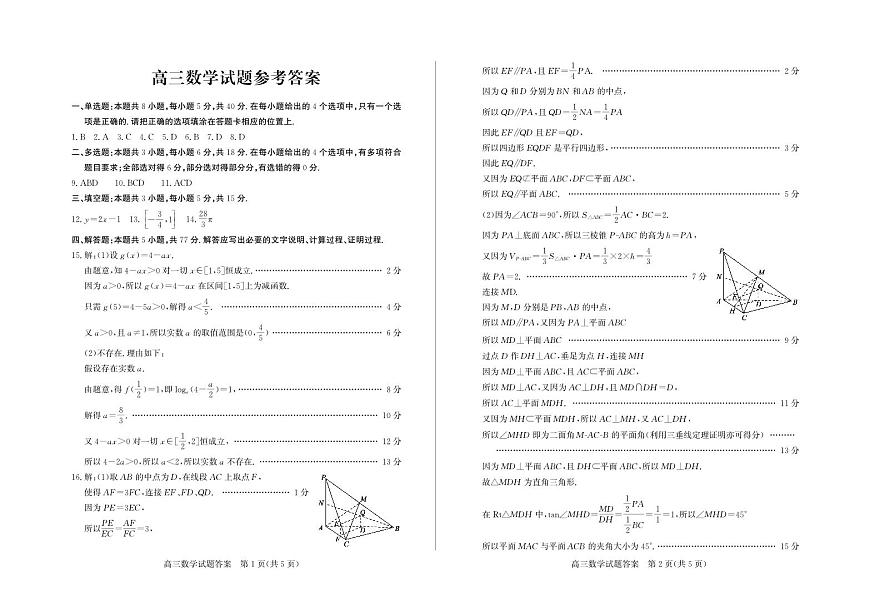 高三数学试题参考答案
一、单选题:本题共 8 小题,每小题 5 分,共 40 分. 在每小题给出的 4 个选项中,只有一个选
项是正确的. 请把正确的选项填涂在答题卡相应的位置上.
1. B 2. A 3. C 4. C 5. D 6. B 7. D 8. D
二、多选题:本题共 3 小题,每小题 6 分,共 18 分. 在每小题给出的 4 个选项中,有多项符合
题目要求;全部选对得 6 分,部分选对得部分分,有选错的得 0 分.
9. ABD 10. BCD 11. ACD
三、填空题:本题共 3 小题,每小题 5 分,共 15 分.
12. y=2x-1 13. [-3/4,1] 14. 28/3 π
四、解答题:本题共 5 小题,共 77 分. 解答应写出必要的文字说明、计算过程、证明过程.
15. 解:(1)设 g(x)=4-ax.
由题意,知 4-ax>0 对一切 x∈[1,5]恒成立. …… 2 分
因为 a>0,所以 g(x)=4-ax 在区间[1,5]上为减函数.
只需 g(5)=4-5a>0,解得 a<4/5. …… 4 分
又 a>0,且 a≠1,所以实数 a 的取值范围是(0,4/5) …… 6 分
(2)不存在. 理由如下:
假设存在实数 a.
由题意,得 f(1/2)=1,即 logₐ(4-a/2)=1, …… 8 分
解得 a=8/3. …… 10 分
又 4-ax>0 对一切 x∈[1/2,2]恒成立, …… 12 分
所以 4-2a>0,所以 a<2,所以实数 a 不存在. …… 13 分
16. 解:(1)取 AB 的中点为 D,在线段 AC 上取点 F,
使得 AF=3FC,连接 EF、FD、QD. …… 1 分
因为 PE=3EC,
所以PE/EC=AF/FC=3,
P
N
M
Q
A
E
D
B
F
C
高三数学试题答案 第 1 页(共 5 页)
所以 EF∥PA,且 EF=1/4 PA. …… 2 分
因为 Q 和 D 分别为 BN 和 AB 的中点,
所以 QD∥PA,且 QD=1/2 NA=1/4 PA
因此 EF∥QD 且 EF=QD,
所以四边形 EQDF 是平行四边形, …… 3 分
因此 EQ∥DF.
又因为 EQ⊄平面 ABC,DF⊂平面 ABC,
所以 EQ∥平面 ABC. …… 5 分
(2)因为∠ACB=90°,所以 S△ABC=1/2 AC・BC=2.
因为 PA⊥底面 ABC,所以三棱锥 P-ABC 的高为 h=PA,
又因为 V P-ABC=1/3 S△ABC・PA=1/3×2×h=4/3
故 PA=2. …… 7 分
连接 MD.
因为 M,D 分别是 PB,AB 的中点,
所以 MD∥PA,又因为 PA⊥平面 ABC
所以 MD⊥平面 ABC …… 9 分
过点 D 作 DH⊥AC,垂足为点 H,连接 MH
因为 MD⊥平面 ABC,且 AC⊂平面 ABC,
所以 MD⊥AC,又因为 AC⊥DH,且 MD∩DH=D,
所以 AC⊥平面 MDH. …… 11 分
又因为 MH⊂平面 MDH,所以 AC⊥MH,又 AC⊥DH,
所以∠MHD 即为二面角 M-AC-B 的平面角(利用三垂线定理证明亦可得分) ……
…… 13 分
因为 MD⊥平面 ABC,且 DH⊂平面 ABC,所以 MD⊥DH.
故△MDH 为直角三角形.
在 Rt△MDH 中,tan∠MHD=MD/DH=(1/2 PA)/(1/2 BC)=1/1=1,所以∠MHD=45°
所以平面 MAC 与平面 ACB 的夹角大小为 45°. …… 15 分
P
N
M
Q
A
E
D
B
H
C
高三数学试题答案 第 2 页(共 5 页)